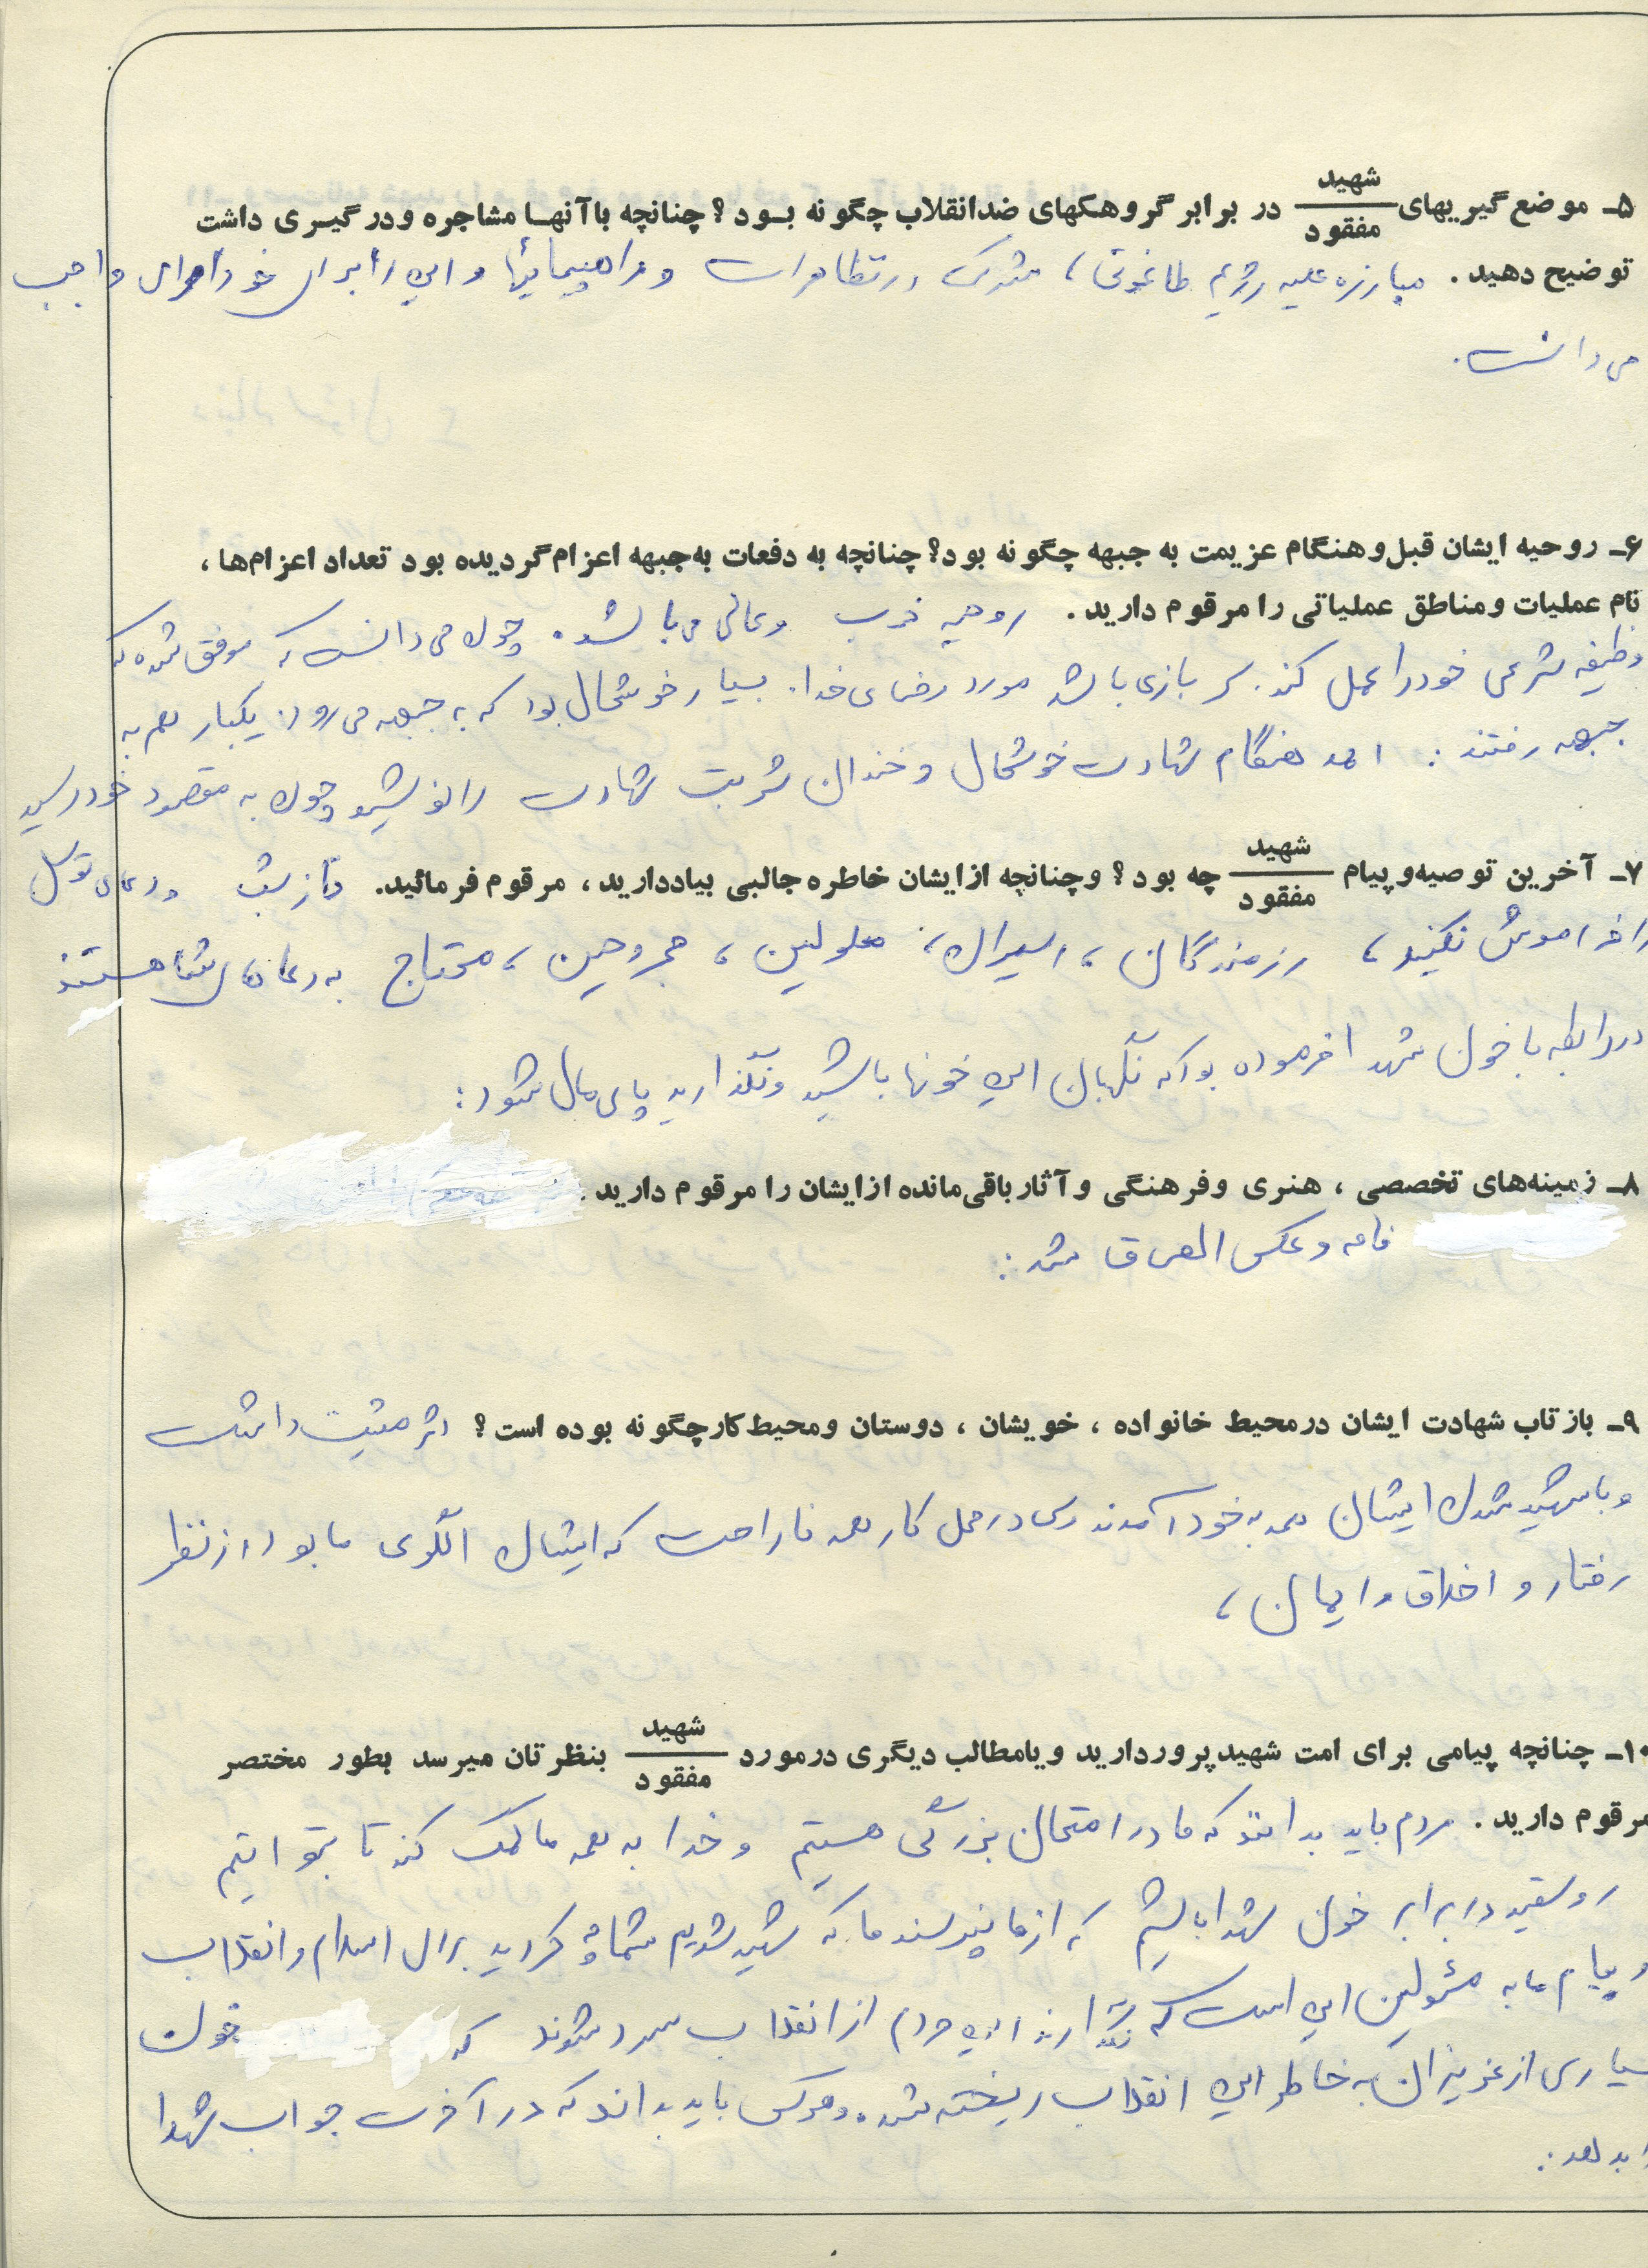 ۵ـ موضع‌گیریهای شهید/مفقود در برابر گروهکهای ضدانقلاب چگونه بود؟ چنانچه باآنها مشاجره ودرگیری داشت
توضیح دهید. مبارزه علیه رژیم طاغوتی، شرکت در تظاهرات و راهپیمائیها و این را برای خود امری واجب
می دانست.
۶ـ روحیه ایشان قبل‌وهنگام عزیمت به جبهه چگونه بود؟ چنانچه به دفعات به‌جبهه اعزام‌گردیده بود تعداد اعزام‌ها،
نام عملیات ومناطق عملیاتی را مرقوم دارید. روحیه خوب وعالی می باشد. چون می دانست که موفق شده که
وظیفه شرعی خود را عمل کند. سربازی باشد مورد رضای خدا. بسیار خوشحال بود که به جبهه می رود. یکبار هم به
جبهه رفتند: هنگام شهادت خوشحال و خندان شربت شهادت را نوشید چون به مقصود خود رسید
۷ـ آخرین توصیه‌وپیام شهید/مفقود چه بود؟ وچنانچه ازایشان خاطره جالبی بیاددارید، مرقوم فرمائید. نماز شب ودعای توسل
را فراموش نکنید، رزمندگان، اسیران، معلولین، مجروحین، محتاج به دعاهای شما هستند
در رابطه با خون شهدا فرموده بود که نگهبان این خونها باشید ونگذارید پای مال شود:
۸ـ زمینه‌های تخصصی، هنری وفرهنگی وآثارباقی‌مانده ازایشان را مرقوم دارید.
نامه وعکس الصاق شد:
۹ـ بازتاب شهادت ایشان درمحیط خانواده، خویشان، دوستان ومحیط‌کارچگونه بوده است؟ اثر مثبت داشت
و با شهید شدن ایشان همه به خود آمدند در محل کار همه ناراحت که ایشان الگوی ما بود از نظر
رفتار و اخلاق و ایمان،
۱۰ـ چنانچه پیامی برای امت شهیدپروردارید ویامطالب دیگری درمورد شهید/مفقود بنظرتان میرسد بطور مختصر
مرقوم دارید. مردم باید بدانند که ما در امتحان بزرگی هستیم و خدا به همه ما کمک کند تا بتوانیم
روسفید در برابر خون شهدا باشیم که از ما نپرسند ما که شهید شدیم شما چه کردید برای اسلام و انقلاب
و پیام ما به مسئولین این است که نگذارند این مردم از انقلاب سرد شوند که خون
بسیاری از عزیزان به خاطر این انقلاب ریخته شده. و هرکس باید بداند که در آخرت جواب شهدا
را بدهد: